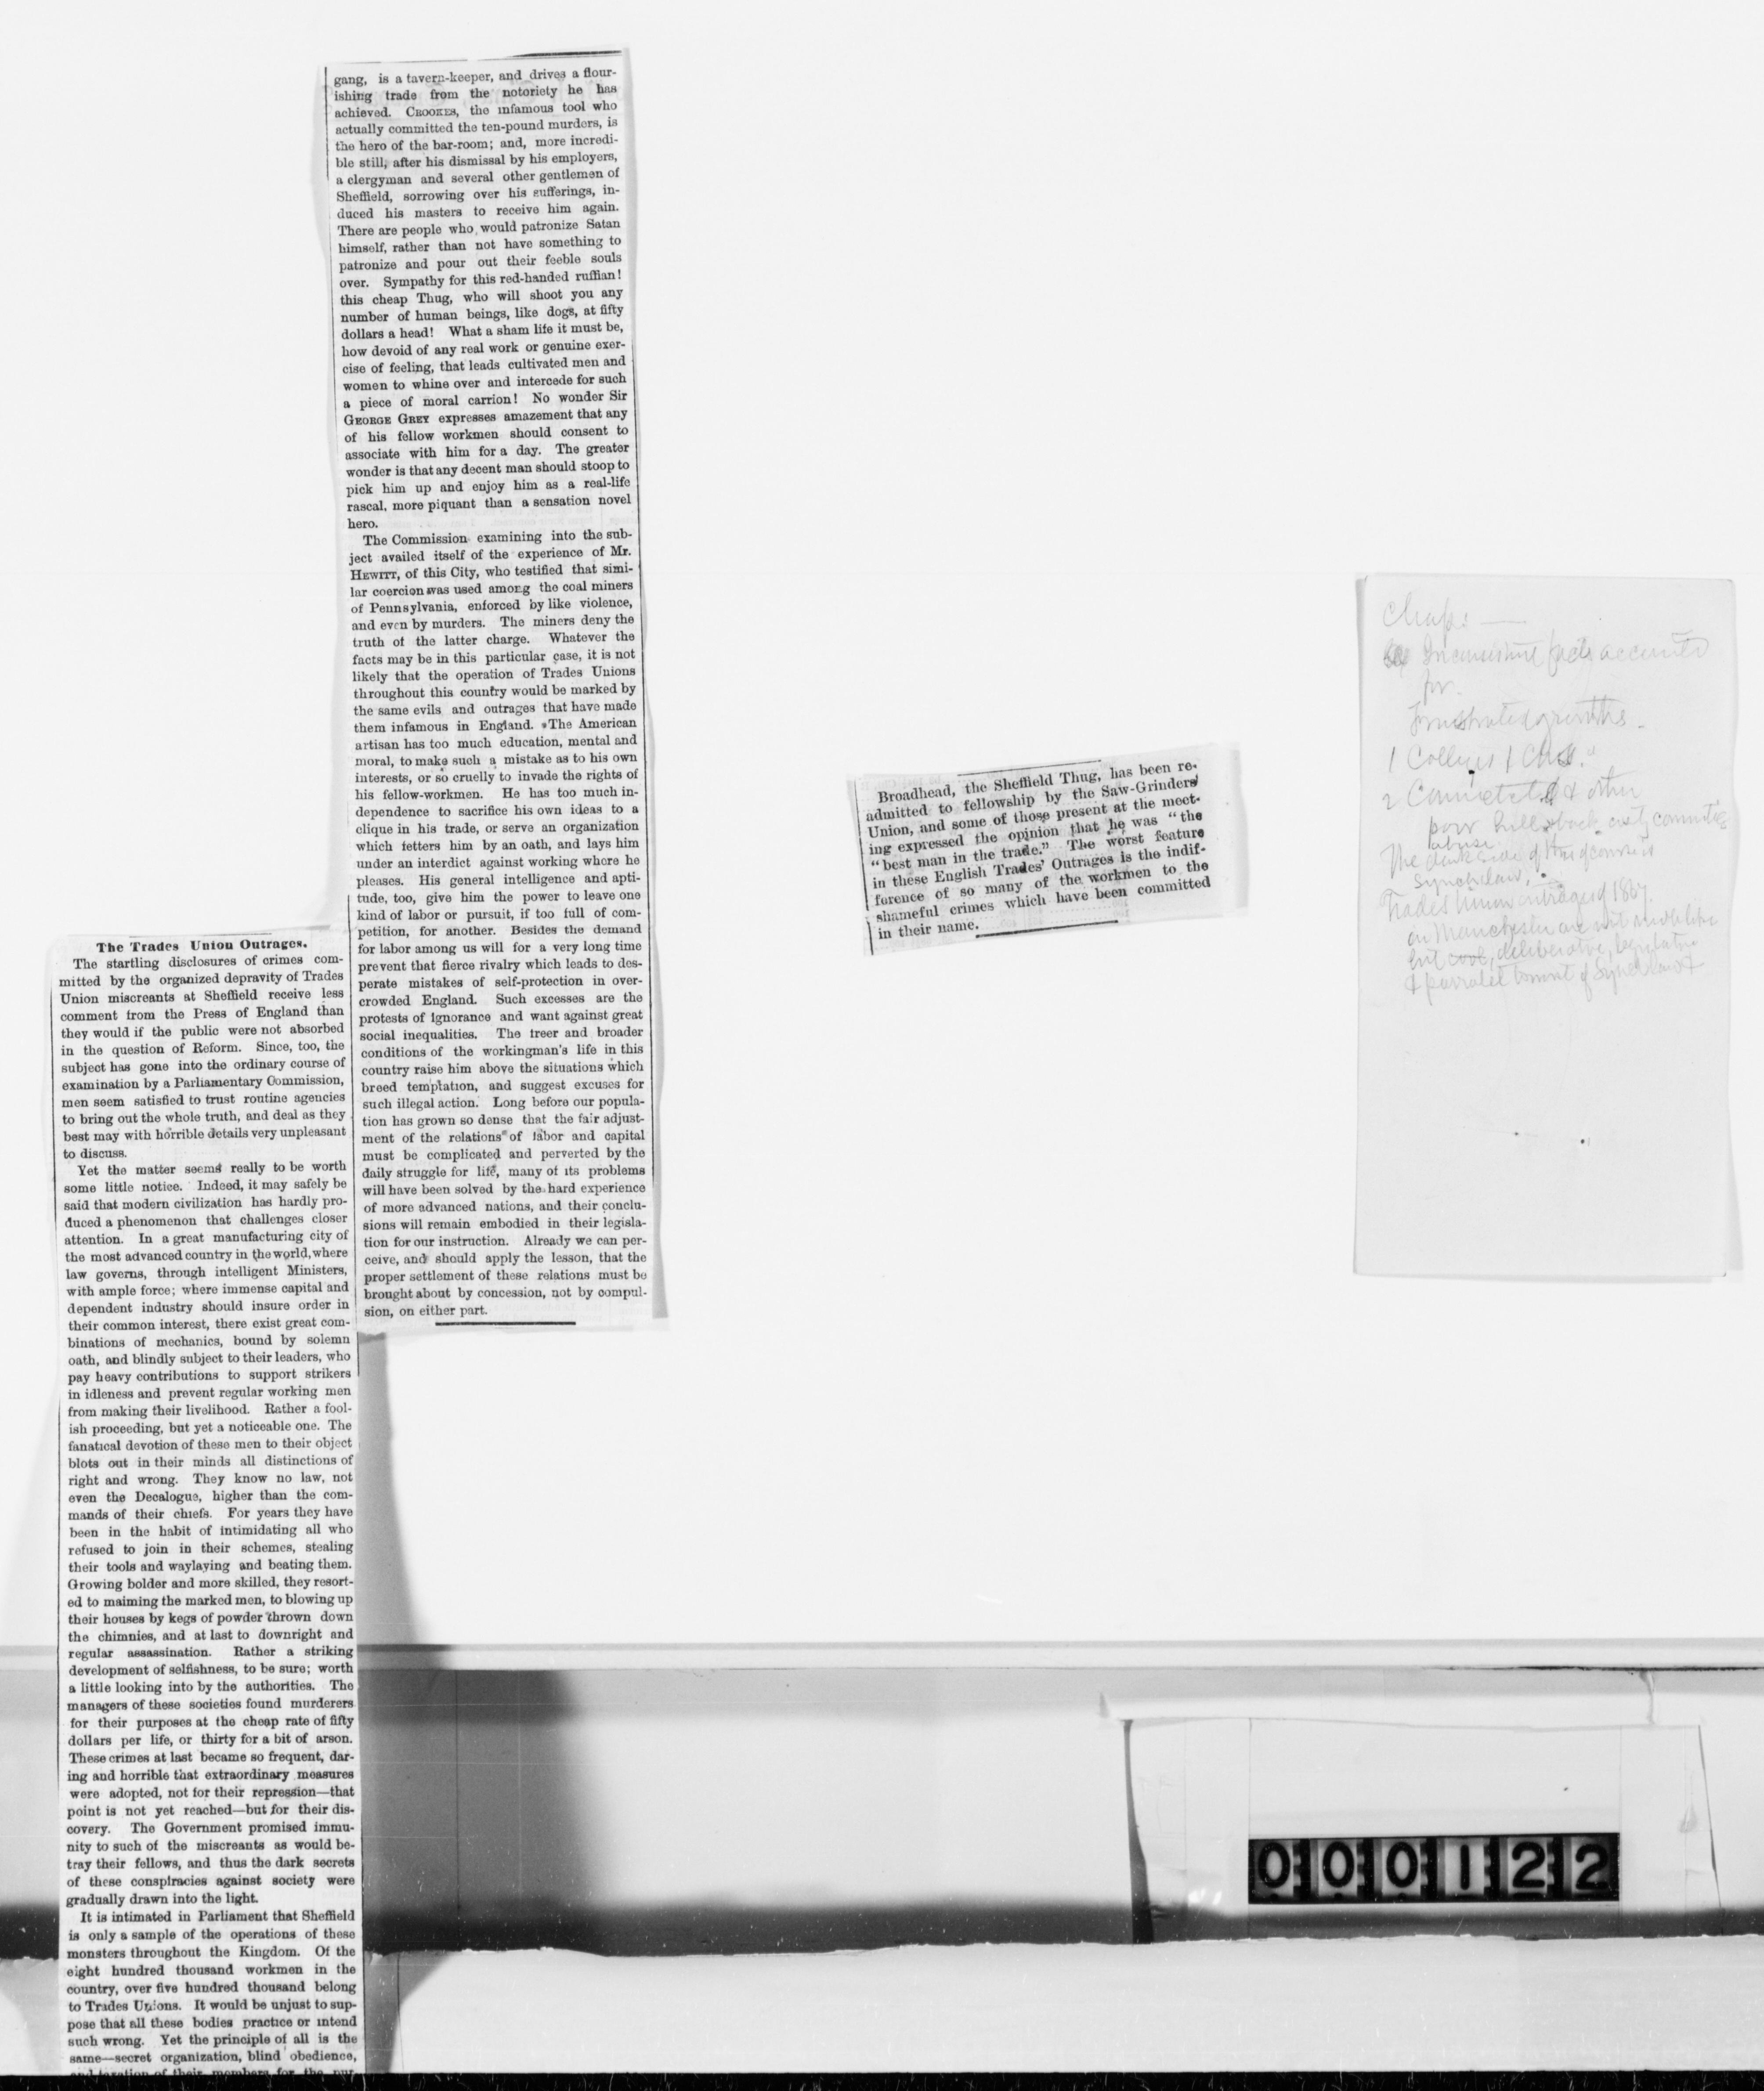 The Trades Union Outrages.
The startling disclosures of crimes com-
mitted by the organized depravity of Trades
Union miscreants at Sheffield receive less
comment from the Press of England than
they would if the public were not absorbed
in the question of Reform. Since, too, the
subject has gone into the ordinary course of
examination by a Parliamentary Commission,
men seem satisfied to trust routine agencies
to bring out the whole truth, and deal as they
best may with horrible details very unpleasant
to discuss.
Yet the matter seems really to be worth
some little notice. Indeed, it may safely be
said that modern civilization has hardly pro-
duced a phenomenon that challenges closer
attention. In a great manufacturing city of
the most advanced country in the world, where
law governs, through intelligent Ministers,
with ample force; where immense capital and
dependent industry should insure order in
their common interest, there exist great com-
binations of mechanics, bound by solemn
oath, and blindly subject to their leaders, who
pay heavy contributions to support strikers
in idleness and prevent regular working men
from making their livelihood. Rather a fool-
ish proceeding, but yet a noticeable one. The
fanatical devotion of these men to their object
blots out in their minds all distinctions of
right and wrong. They know no law, not
even the Decalogue, higher than the com-
mands of their chiefs. For years they have
been in the habit of intimidating all who
refused to join in their schemes, stealing
their tools and waylaying and beating them.
Growing bolder and more skilled, they resort-
ed to maiming the marked men, to blowing up
their houses by kegs of powder thrown down
the chimnies, and at last to downright and
regular assassination. Rather a striking
development of selfishness, to be sure; worth
a little looking into by the authorities. The
managers of these societies found murderers
for their purposes at the cheap rate of fifty
dollars per life, or thirty for a bit of arson.
These crimes at last became so frequent, dar-
ing and horrible that extraordinary measures
were adopted, not for their repression—that
point is not yet reached—but for their dis-
covery. The Government promised immu-
nity to such of the miscreants as would be-
tray their fellows, and thus the dark secrets
of these conspiracies against society were
gradually drawn into the light.
It is intimated in Parliament that Sheffield
is only a sample of the operations of these
monsters throughout the Kingdom. Of the
eight hundred thousand workmen in the
country, over five hundred thousand belong
to Trades Unions. It would be unjust to sup-
pose that all these bodies practice or intend
such wrong. Yet the principle of all is the
same—secret organization, blind obedience,
and taxation of their members for the pur-
gang, is a tavern-keeper, and drives a flour-
ishing trade from the notoriety he has
achieved. CROOKES, the infamous tool who
actually committed the ten-pound murders, is
the hero of the bar-room; and, more incredi-
ble still, after his dismissal by his employers,
a clergyman and several other gentlemen of
Sheffield, sorrowing over his sufferings, in-
duced his masters to receive him again.
There are people who would patronize Satan
himself, rather than not have something to
patronize and pour out their feeble souls
over. Sympathy for this red-handed ruffian!
this cheap Thug, who will shoot you any
number of human beings, like dogs, at fifty
dollars a head! What a sham life it must be,
how devoid of any real work or genuine exer-
cise of feeling, that leads cultivated men and
women to whine over and intercede for such
a piece of moral carrion! No wonder Sir
GEORGE GREY expresses amazement that any
of his fellow workmen should consent to
associate with him for a day. The greater
wonder is that any decent man should stoop to
pick him up and enjoy him as a real-life
rascal, more piquant than a sensation novel
hero.
The Commission examining into the sub-
ject availed itself of the experience of Mr.
HEWITT, of this City, who testified that simi-
lar coercion was used among the coal miners
of Pennsylvania, enforced by like violence,
and even by murders. The miners deny the
truth of the latter charge. Whatever the
facts may be in this particular case, it is not
likely that the operation of Trades Unions
throughout this country would be marked by
the same evils and outrages that have made
them infamous in England. The American
artisan has too much education, mental and
moral, to make such a mistake as to his own
interests, or so cruelly to invade the rights of
his fellow-workmen. He has too much in-
dependence to sacrifice his own ideas to a
clique in his trade, or serve an organization
which fetters him by an oath, and lays him
under an interdict against working where he
pleases. His general intelligence and apti-
tude, too, give him the power to leave one
kind of labor or pursuit, if too full of com-
petition, for another. Besides the demand
for labor among us will for a very long time
prevent that fierce rivalry which leads to des-
perate mistakes of self-protection in over-
crowded England. Such excesses are the
protests of ignorance and want against great
social inequalities. The freer and broader
conditions of the workingman's life in this
country raise him above the situations which
breed temptation, and suggest excuses for
such illegal action. Long before our popula-
tion has grown so dense that the fair adjust-
ment of the relations of labor and capital
must be complicated and perverted by the
daily struggle for life, many of its problems
will have been solved by the hard experience
of more advanced nations, and their conclu-
sions will remain embodied in their legisla-
tion for our instruction. Already we can per-
ceive, and should apply the lesson, that the
proper settlement of these relations must be
brought about by concession, not by compul-
sion, on either part.
Broadhead, the Sheffield Thug, has been re-
admitted to fellowship by the Saw-Grinders'
Union, and some of those present at the meet-
ing expressed the opinion that he was "the
"best man in the trade." The worst feature
in these English Trades' Outrages is the indif-
ference of so many of the workmen to the
shameful crimes which have been committed
in their name.
Chap:
facts accounted
for.
growths
1 Colleges &
2 & other
abuse
The dark side of this of course is
Lynch law,
Trades Union outrages of 1867
in Manchester are not
but cool, deliberative, legislative
& of Lynch law
000122